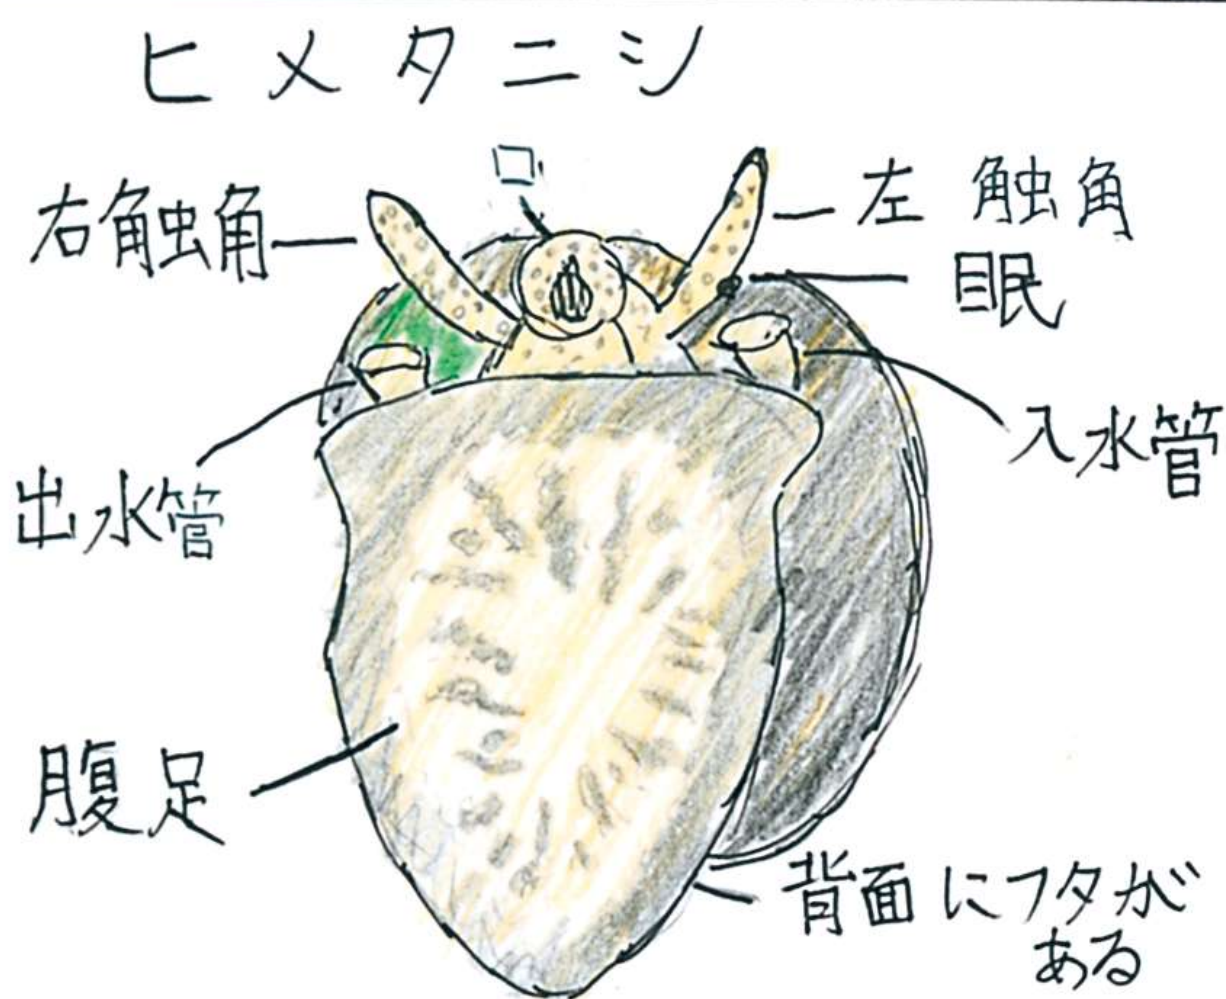 ヒメタニシ
口
右触角
左 触角
眼
入水管
出水管
腹足
背面にフタが
ある